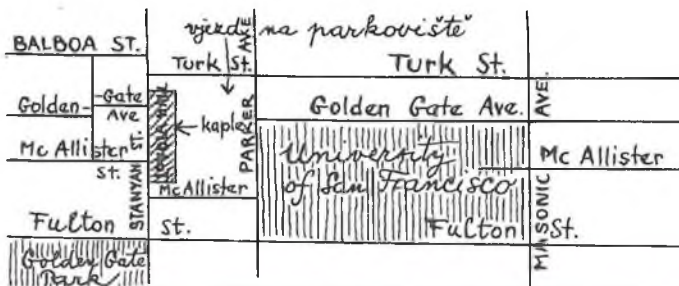 vjezd na parkoviště
BALBOA ST.
Turk St.
AVE
Turk St.
Golden-Gate
Ave
Golden Gate Ave.
AVE.
kaple
PARKER
Mc Allister
St.
STANYAN ST.
McAllister
University
of San Francisco
Mc Allister
MASONIC
Fulton St.
Fulton St.
Golden Gate
Park